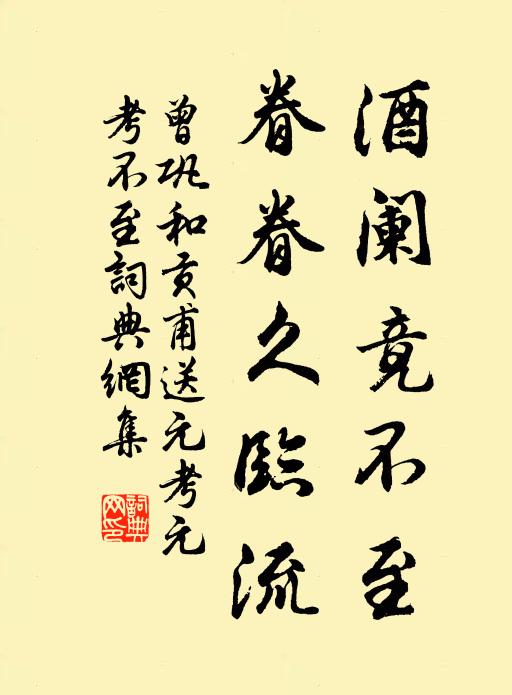 酒阑竟不至
眷眷久臨流
曾巩和贡甫送元考元
考不至詞典網集
詞典網印